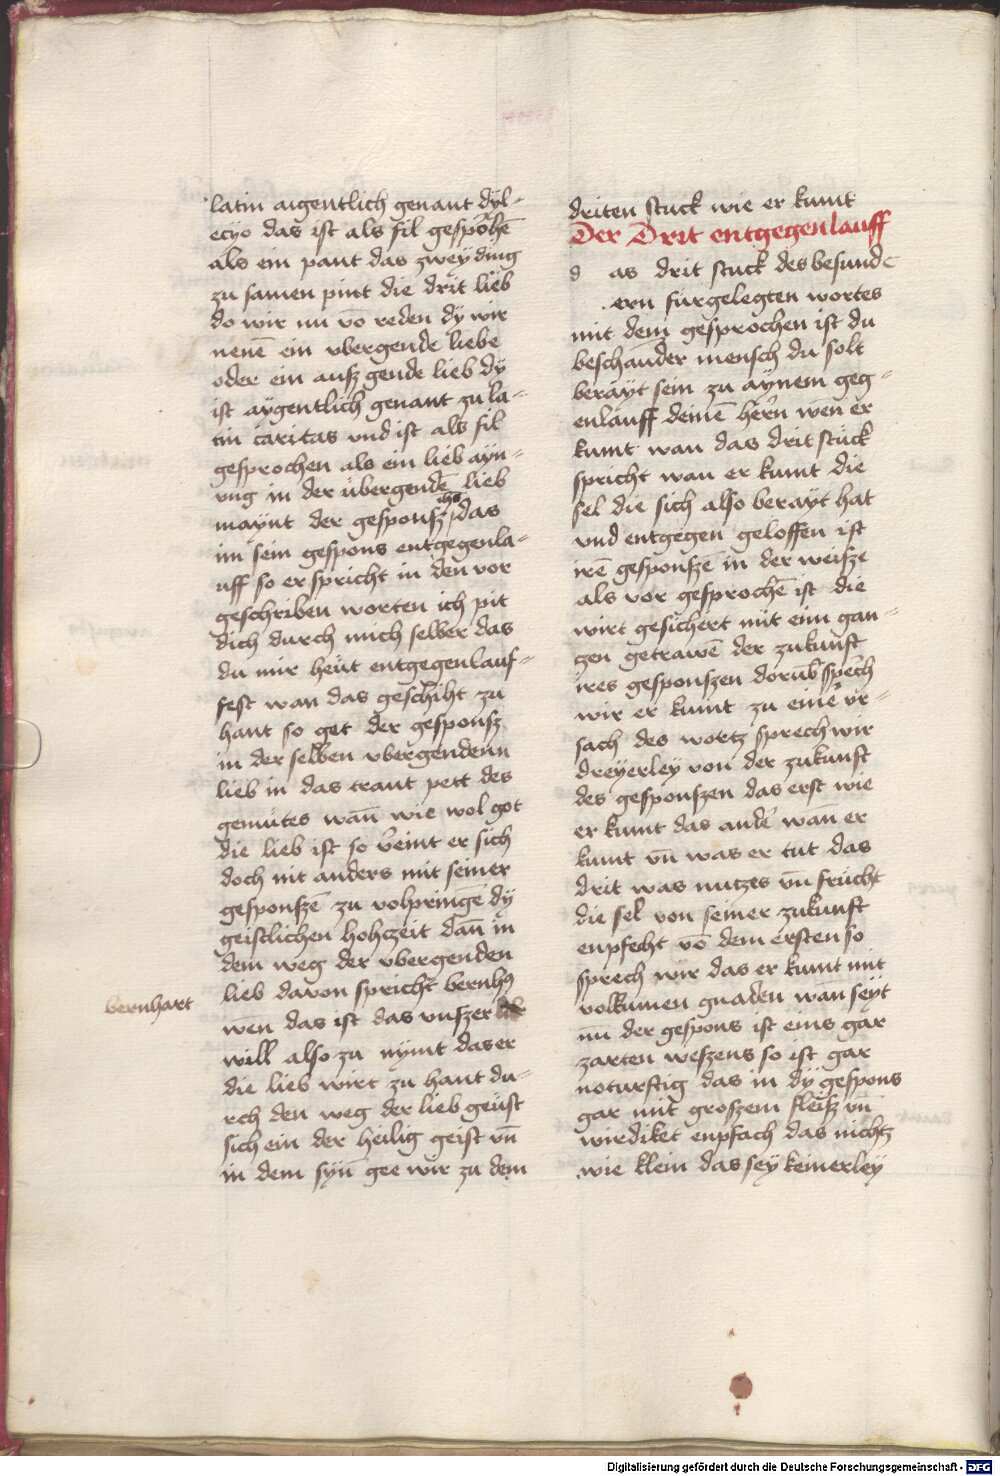 latin aigentlich genant dyl-
ecyo das ist als fil gesprochē
als ein pant das zwey ding
zu samen pint die drit lieb
do wir nu vō reden dy wir
nenē ein vbergende liebe
oder ein ausz gende lieb dÿ
ist aygentlich genant zu la-
tin caritas vnd ist als fil
gesprochen als ein lieb ayn-
vng in der übergendē lieb
maynt der gesponsz das
im sein gespons entgegenla-
uff so er spricht in den vor
geschriben worten ich pit
dich durch mich selber das
du mir heüt entgegenlauf-
fest wan das geschiht zu
hant so get der gesponsz
in der selben vbergendenn
lieb in das traut pett des
gemütes wan̄ wie wol got
die lieb ist so v̄eint er sich
doch nit anders mit seiner
gesponszē zu volpringē dÿ
geistlichen hohczeit dan̄ in
dem weg der vbergenden
lieb davon spricht bernhꝰ
bernhart
wen das ist das vnszer
will also zu nymt das er
die lieb wirt zu hant du-
rch den weg der lieb geüst
sich ein der heilig geist vn̄
in dem syn̄ gee wir zu dem
driten stuck wie er kumt
Der Drit entgegenlauff
d as drit stuck des besunde
ern fürgelegten wortes
mit dem gesprochen ist du
beschauder mensch du solt
berayt sein zu aynem geg-
enlauff deinē herrn wen er
kumt wan das drit stück
spricht wan er kumt die
sel die sich also berayt hat
vnd entgegen geloffen ist
irē gesponszē in der weisze
als vor gesprochē ist die
wirt gesichert mit eim gan-
czen getrawē der zukunft
ires gesponszen dorüb sprech
wir er kumt zu einē vr-
sach des wortz sprech wir
dreyerley von der zukunft
des gesponszen das erst wie
er kumt das ander wan̄ er
kumt vn̄ was er tut das
drit was nutzes vn̄ frücht
die sel von seiner zukunft
enpfecht vō dem ersten so
sprech wir das er kumt mit
volkumen gnaden wan seyt
nu der gespons ist eins gar
zarten weszens so ist gar
noturftig das in dÿ gespons
gar mit groszem fleisz vn̄
wirdiket enpfach das nichtz
wie klein das sey keinerley
Digitalisierung gefördert durch die Deutsche Forschungsgemeinschaft - DFG